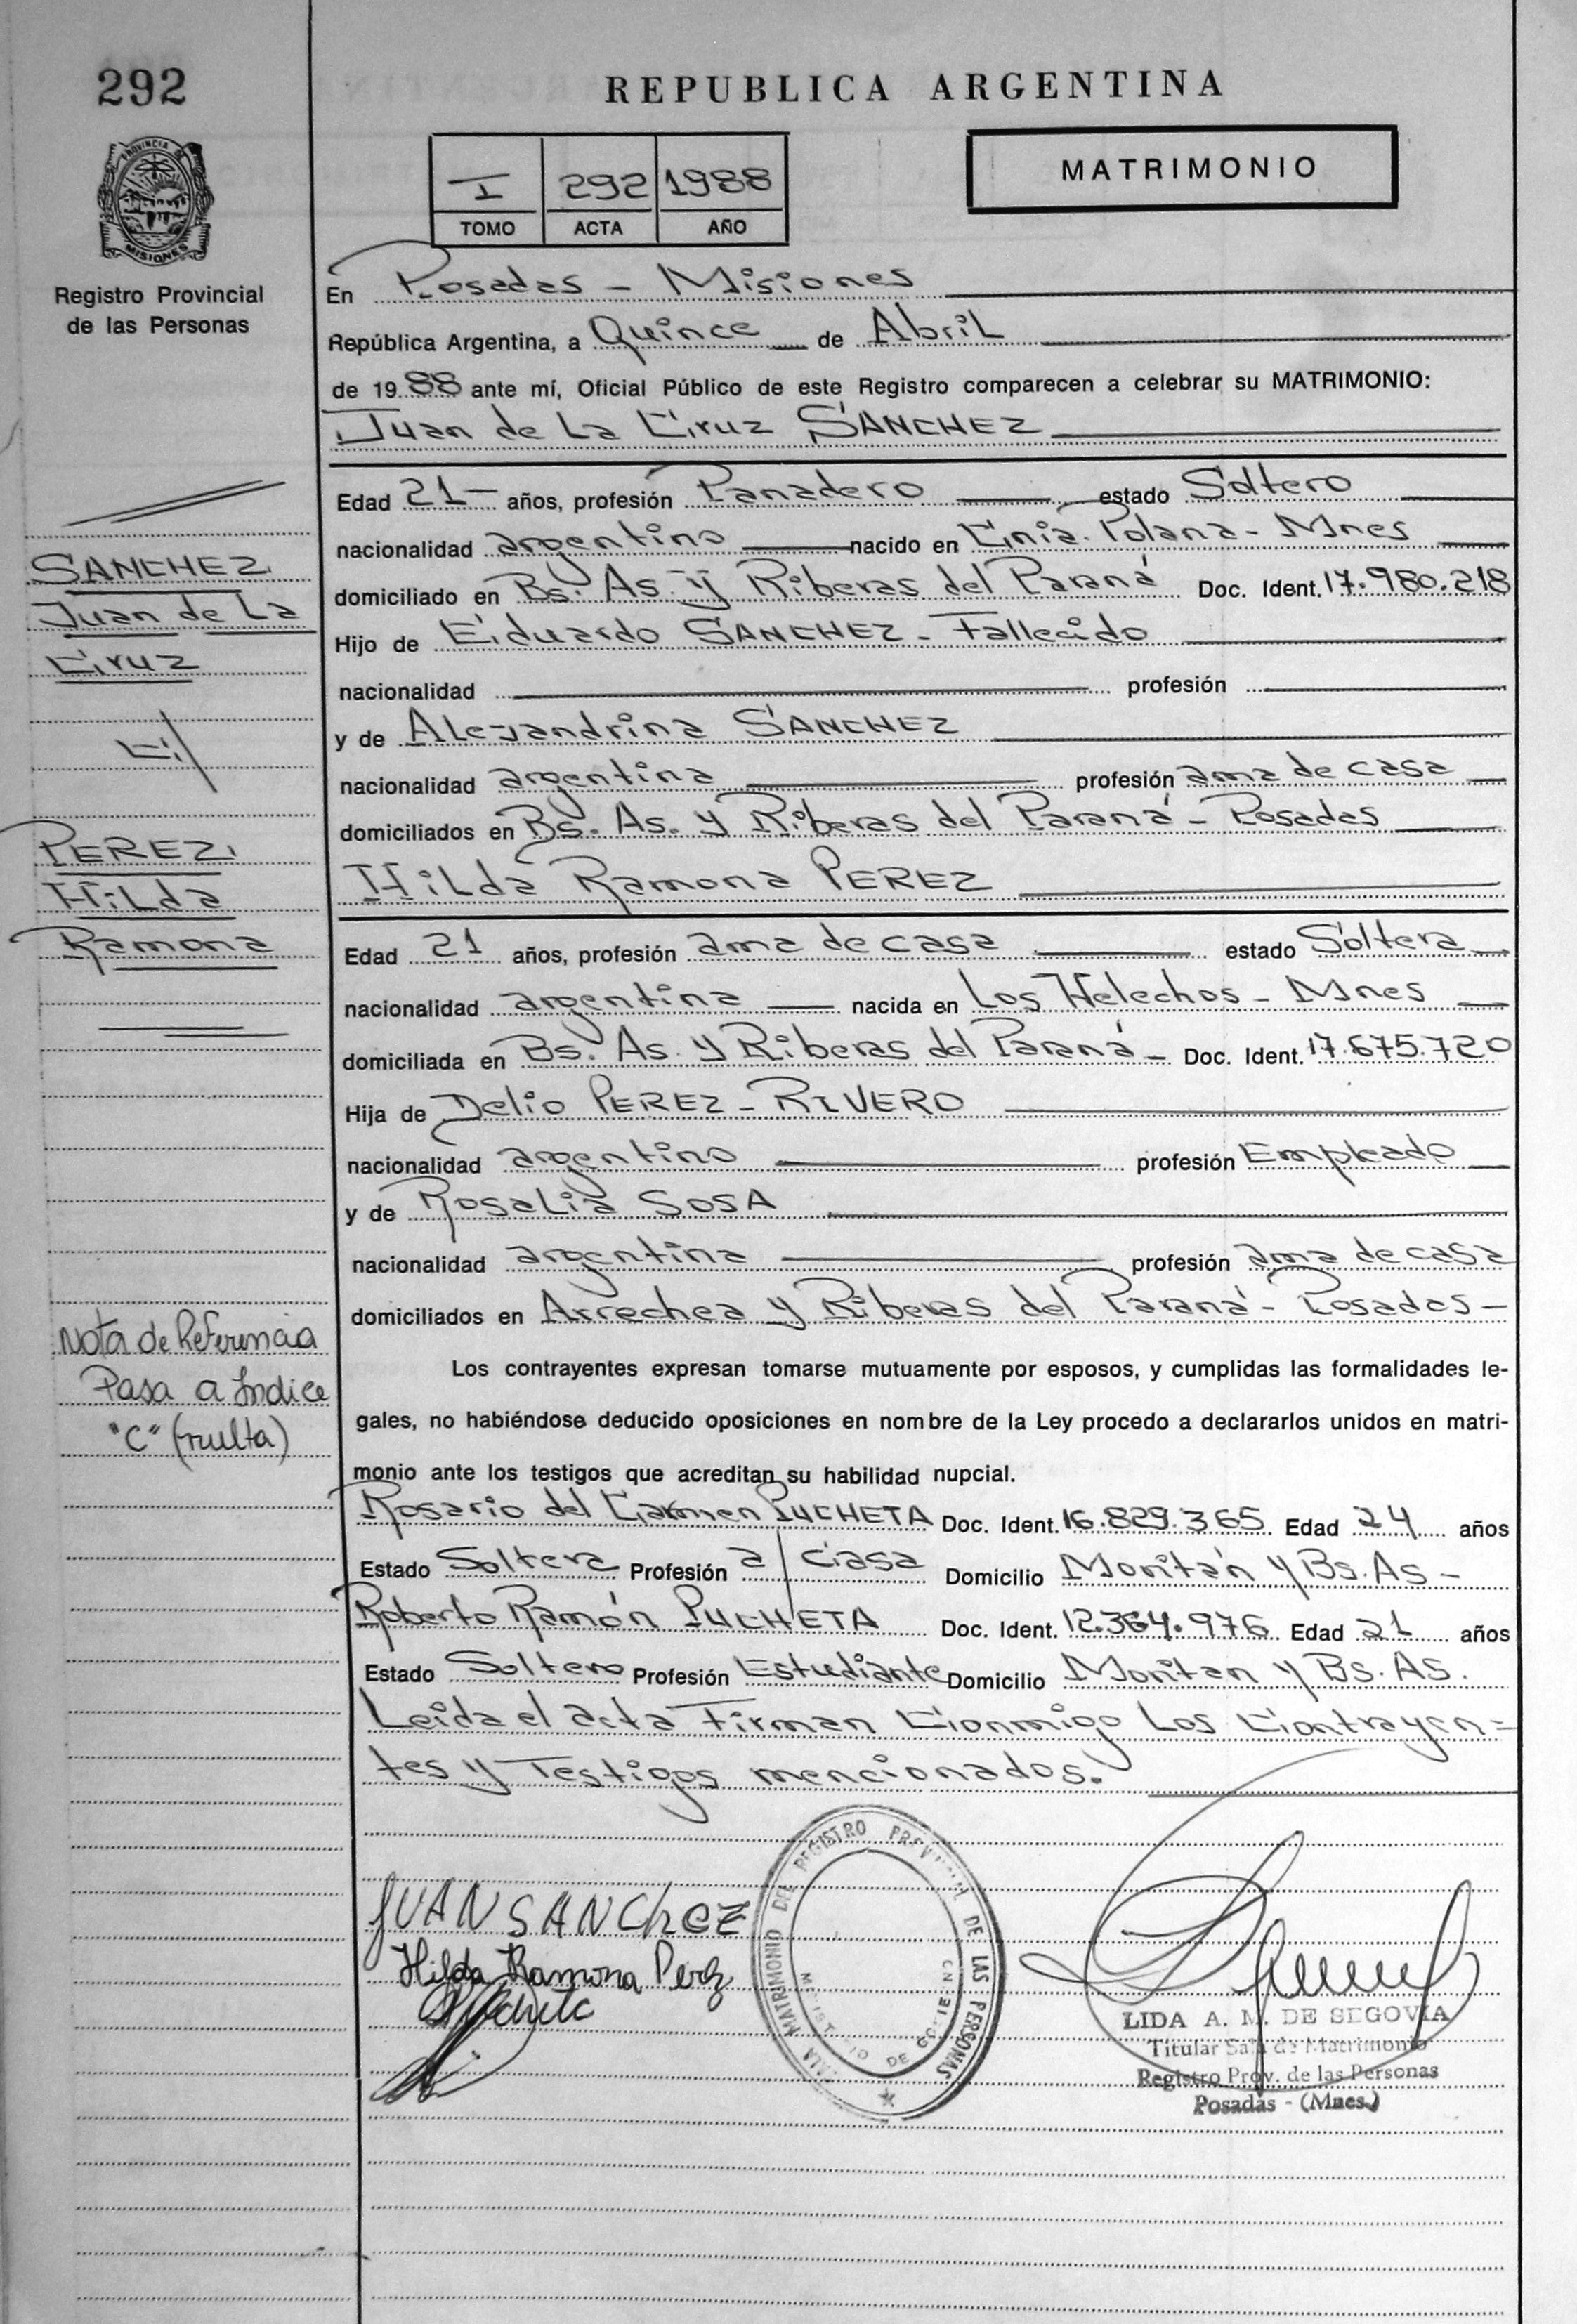 292
REPUBLICA ARGENTINA
PROVINCIA DE
MISIONES
Registro Provincial
de las Personas
I 292 1988
TOMO ACTA AÑO
MATRIMONIO
En Posadas - Misiones
República Argentina, a Quince de Abril
de 1988 ante mí, Oficial Público de este Registro comparecen a celebrar su MATRIMONIO:
Juan de La Cruz SANCHEZ
Edad 21 años, profesión Panadero estado Soltero
nacionalidad argentino nacido en Cnia. Polana - Mnes
domiciliado en Bs. As. y Riberas del Paraná Doc. Ident. 17.980.218
Hijo de Eduardo SANCHEZ - Fallecido
nacionalidad profesión
y de Alejandrina SANCHEZ
nacionalidad argentina profesión ama de casa
domiciliados en Bs. As. y Riberas del Paraná - Posadas
Hilda Ramona PEREZ
Edad 21 años, profesión ama de casa estado Soltera
nacionalidad argentina nacida en Los Helechos - Mnes
domiciliada en Bs. As. y Riberas del Paraná - Doc. Ident. 17.675.720
Hija de Delio PEREZ - RIVERO
nacionalidad argentino profesión Empleado
y de Rosalia SOSA
nacionalidad argentina profesión ama de casa
domiciliados en Arrechea y Riberas del Paraná - Posadas -
Los contrayentes expresan tomarse mutuamente por esposos, y cumplidas las formalidades le-
gales, no habiéndose deducido oposiciones en nombre de la Ley procedo a declararlos unidos en matri-
monio ante los testigos que acreditan su habilidad nupcial.
Rosario del Carmen PUCHETA Doc. Ident. 16.829.365 Edad 24 años
Estado Soltera Profesión a/casa Domicilio Moritán y Bs. As -
Roberto Ramón PUCHETA Doc. Ident. 12.364.976 Edad 21 años
Estado Soltero Profesión Estudiante Domicilio Moritan y Bs. As.
Leida el acta Firman Conmigo Los Contrayen=
tes y Testigos mencionados.
SANCHEZ
Juan de La
Cruz
C/
PEREZ,
Hilda
Ramona
Nota de Referencia
Pasa a Indice
"C" (vuelta)
JUAN SANChEZ
Hilda Ramona Perez
SALA MATRIMONIO DEL REGISTRO PROVINCIAL DE LAS PERSONAS
MINISTERIO DE GOBIERNO
LIDA A. M. DE SEGOVIA
Titular Sala de Matrimonio
Registro Prov. de las Personas
Posadas - (Mnes.)